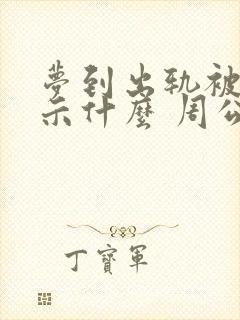 夢到出軌被
示什麼 周公
丁寶軍